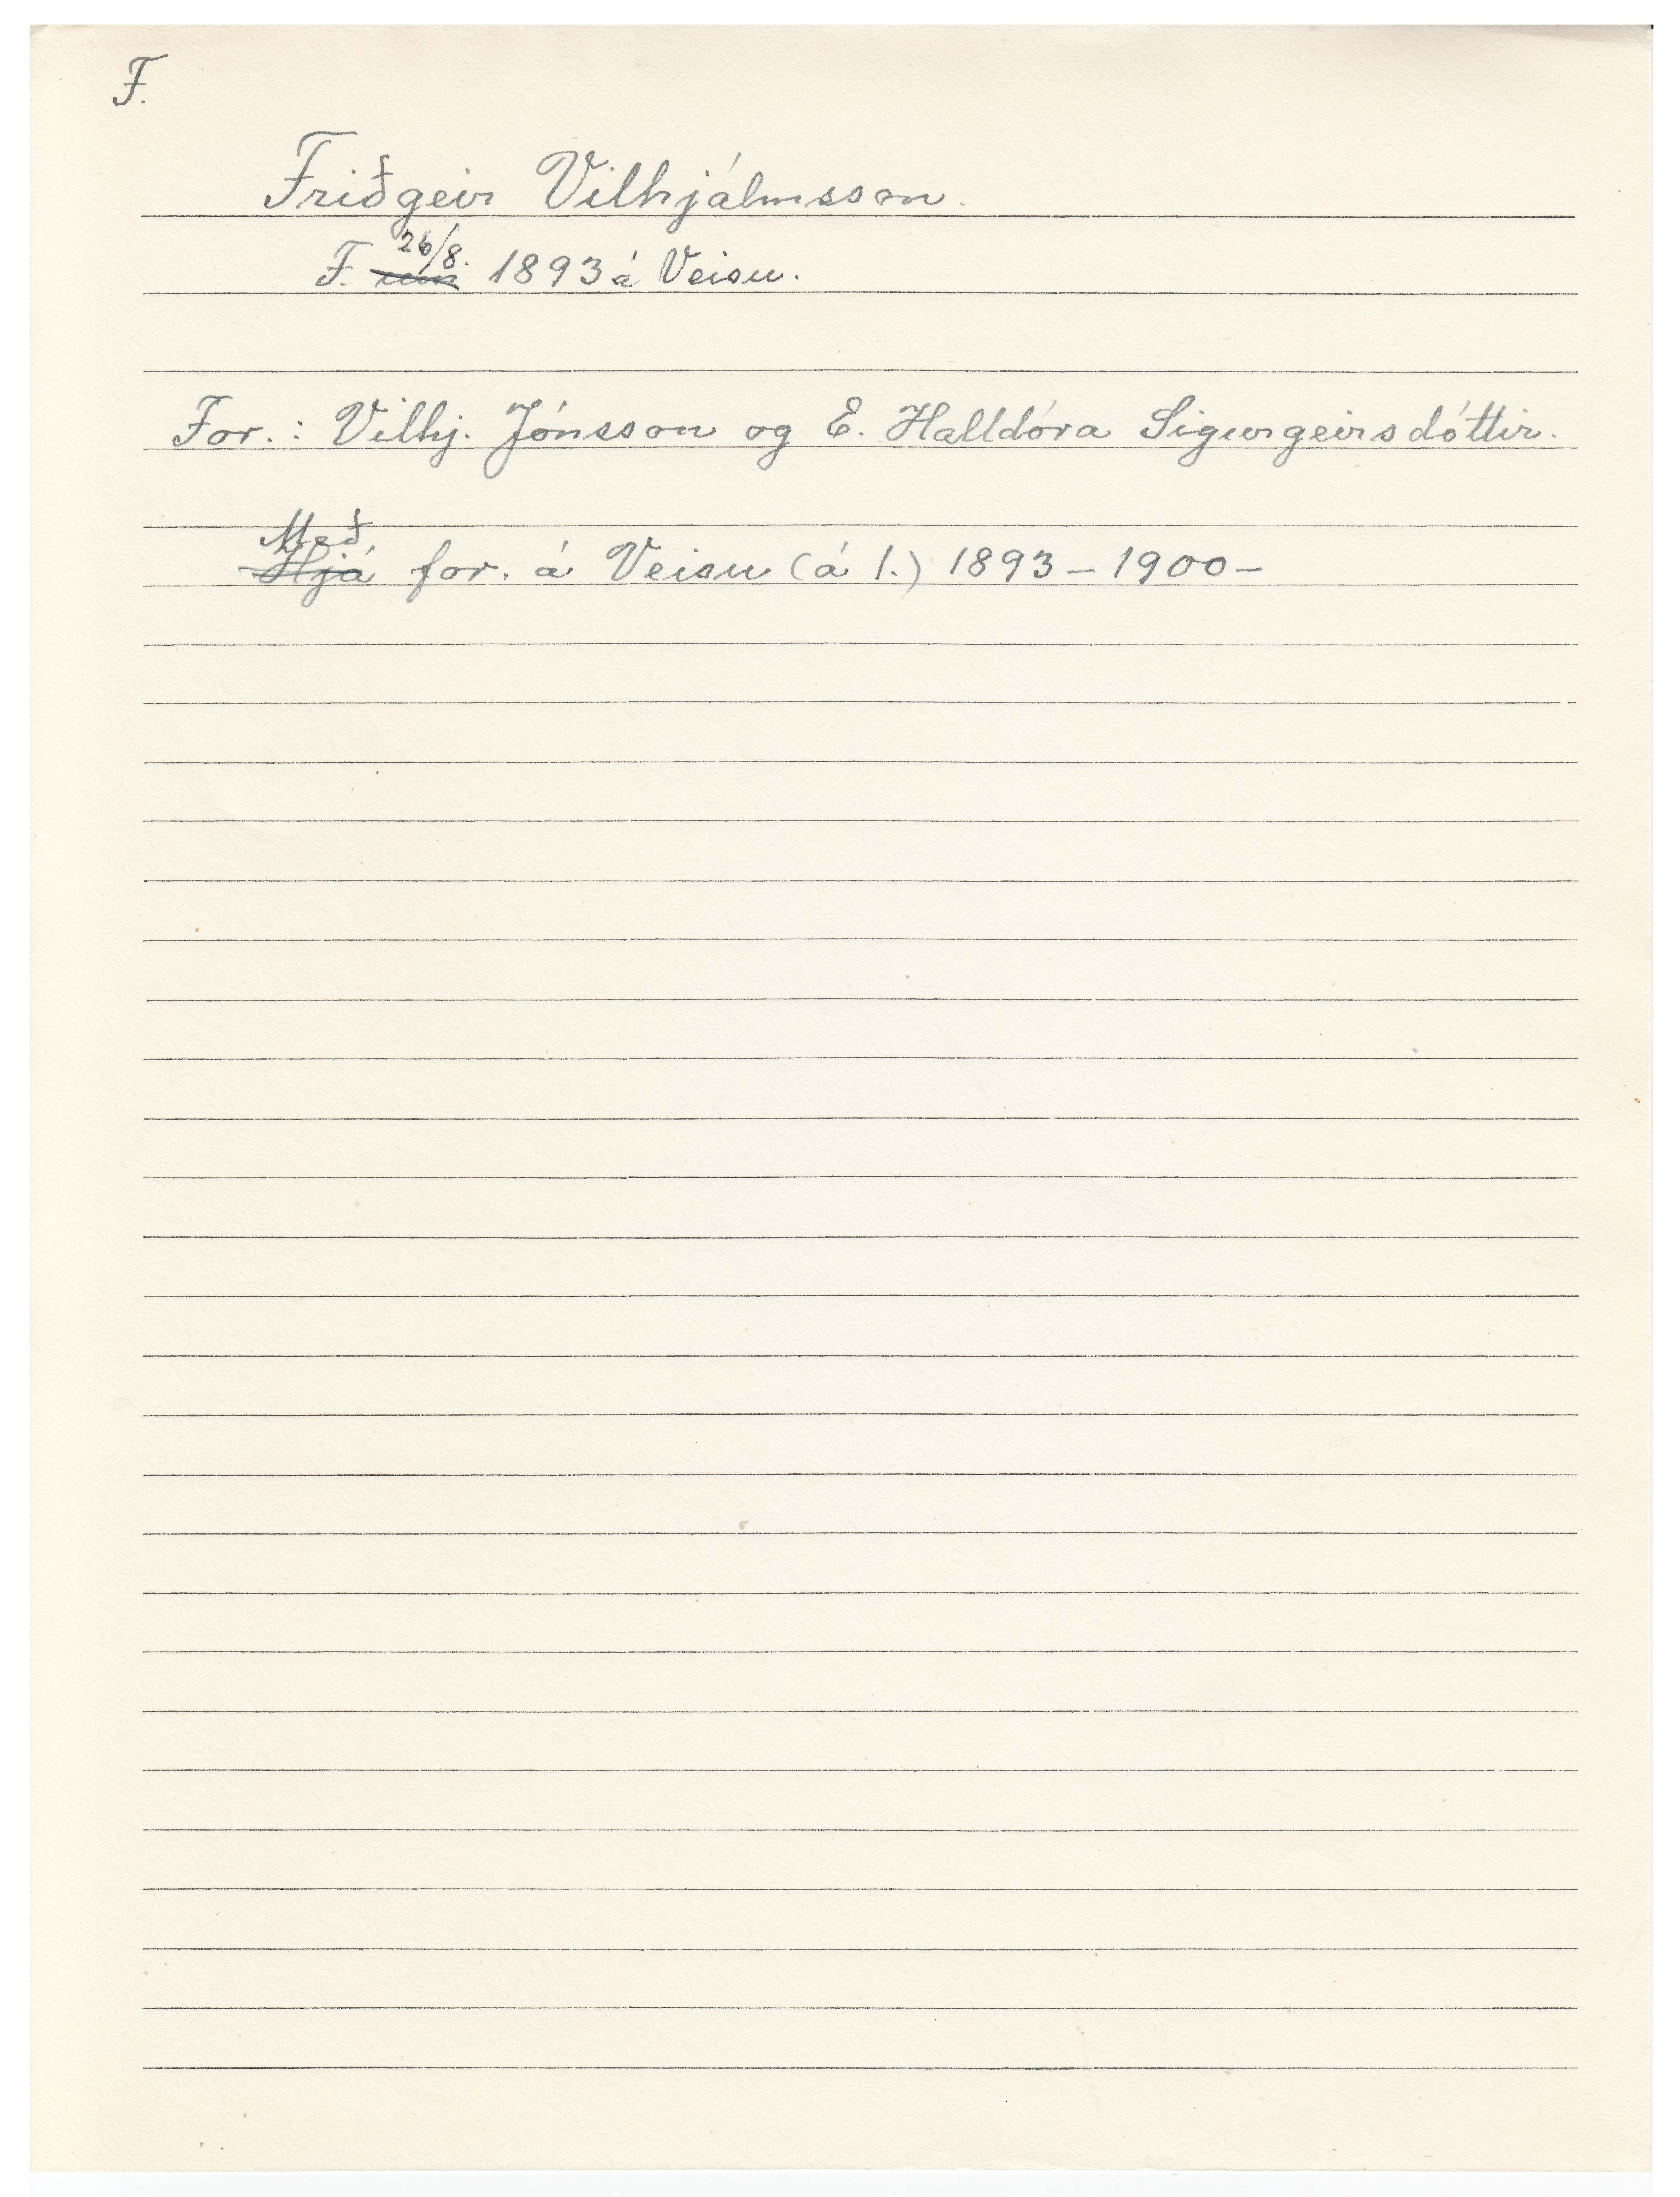 F.
Friðgeir Vilhjálmsson.
F. um 26/8. 1893 á Veisu.
For.: Vilhj. Jónsson og E. Halldóra Sigurgeirsdóttir.
Með
Hjá for. á Veisu (á 1.) 1893 – 1900 –